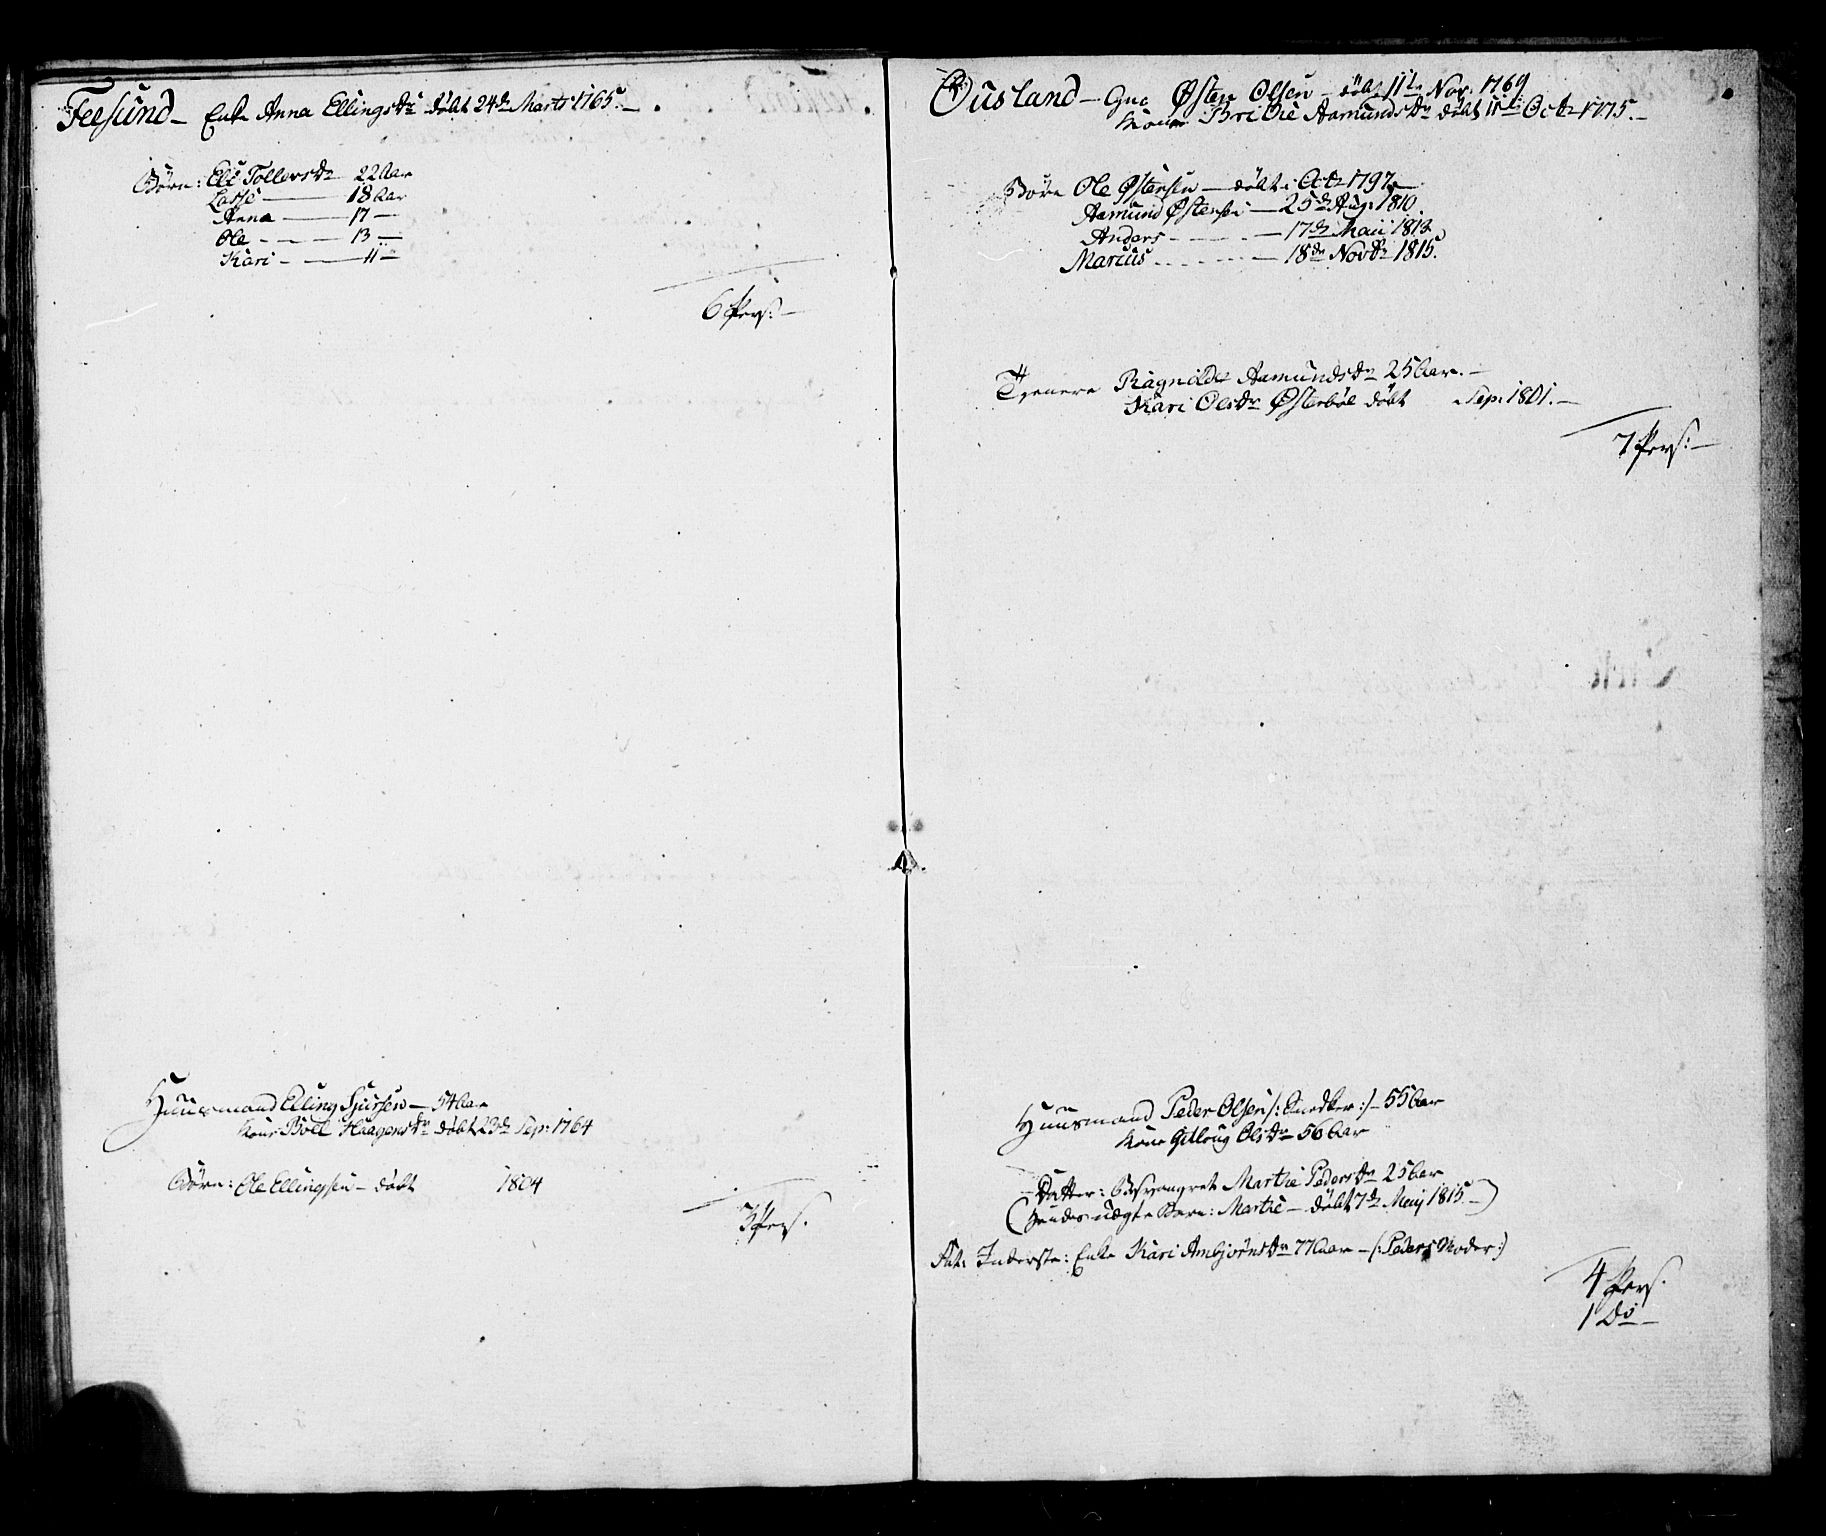 Feesund – Enke Anna Ellingsdr döbt 24de Marts 1765. –
Börn: Eli Tollevsdr 22 Aar
Lasse — 18 Aar
Anna — 17 —
Ole — 13 —
Kari — 11 —
6 Pers: —
Huusmand Elling Sjursen — 54 Aar
Kone Boel Haagensdr döbt 23de Sep: 1764
Börn: Ole Ellingsen – döbt 1804
3 Pers.
Ousland – Gmd Østen Olsen – döbt 11te Nov. 1769
Kone Brithe Aamundsdr döbt 11te Octr 1775. –
Börn Ole Østensen — döbt i Octr 1797 —
Aamund Østensen — 25de Aug: 1810
Anders — 17de Maii 1813
Marius — 18de Novbr 1815.
Tjenere Ragnilde Aamundsdr 25 Aar. –
Kari Olsdr Østerböe döbt Sep: 1801. –
7 Pers: —
Huusmand Peder Olsen /: Snedker :/ – 55 Aar
Kone Gitloug Olsdr 56 Aar
Datter: Marthe Pedersdr 25 Aar
(hendes uægte Barn: Marthe – döbt 7de Maij 1815. –)
Inderste: Enke Kari Ambjörnsdr 77 Aar – (: Peders Moder :)
4 Pers.
1 Do –